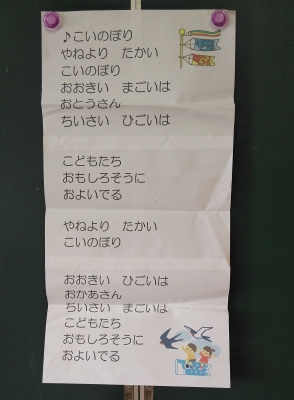 ♪こいのぼり
やねより　たかい
こいのぼり
おおきい　まごいは
おとうさん
ちいさい　ひごいは
こどもたち
おもしろそうに
およいでる
やねより　たかい
こいのぼり
おおきい　ひごいは
おかあさん
ちいさい　まごいは
こどもたち
おもしろそうに
およいでる